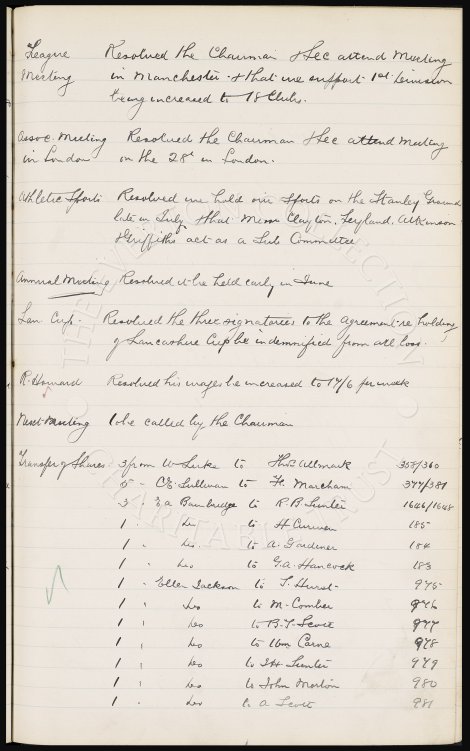 League Resolved the Chairman & Sec attend Meeting
Meeting in Manchester & that we support 1st Division
being increased to 18 Clubs.
Assoc. Meeting Resolved the Chairman & Sec attend Meeting
in London on the 28th in London.
Athletic Sports Resolved we hold our Sports on the Stanley Ground
late in July & that Messrs Clayton, Leyland, Atkinson
& Griffiths act as a Sub Committee
Annual Meeting Resolved it be held early in June
Lan. Cup. Resolved the three signatories to the agreement re holding
of Lancashire Cup be indemnified from all loss.
R. Howard Resolved his wages be increased to 17/6 per week
Next Meeting to be called by the Chairman
Transfer of Shares 3 from W to Thos Allmark 358/360
5 " C E Sullivan to H. Marcham 377/381
3 " Ea Bainbridge to R B 1646/1648
1 " do to H Curwen 185
1 " do to A. Gardiner 184
1 " do to G. A. Hancock 183
1 " Ellen Jackson to J. Hurst 975
1 " do to M. Comber 976
1 " do to B. J. Scott 977
1 " do to Wm Carne 978
1 " do to 979
1 " do to John Morton 980
1 " do to A Scott 981
THE EVERTON COLLECTION
CHARITABLE TRUST